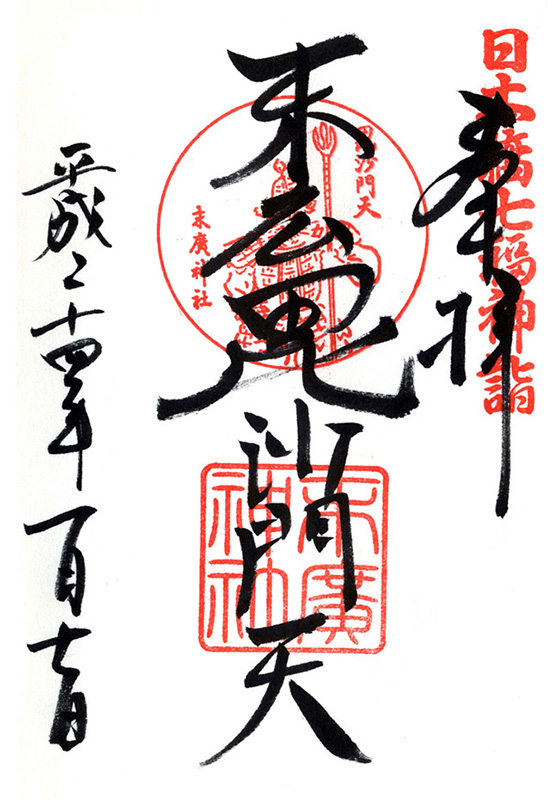 日本橋七福神詣
奉拝
毘沙門天
末廣神社
末広 毘沙門天
末廣神社
平成二十四年一月七日